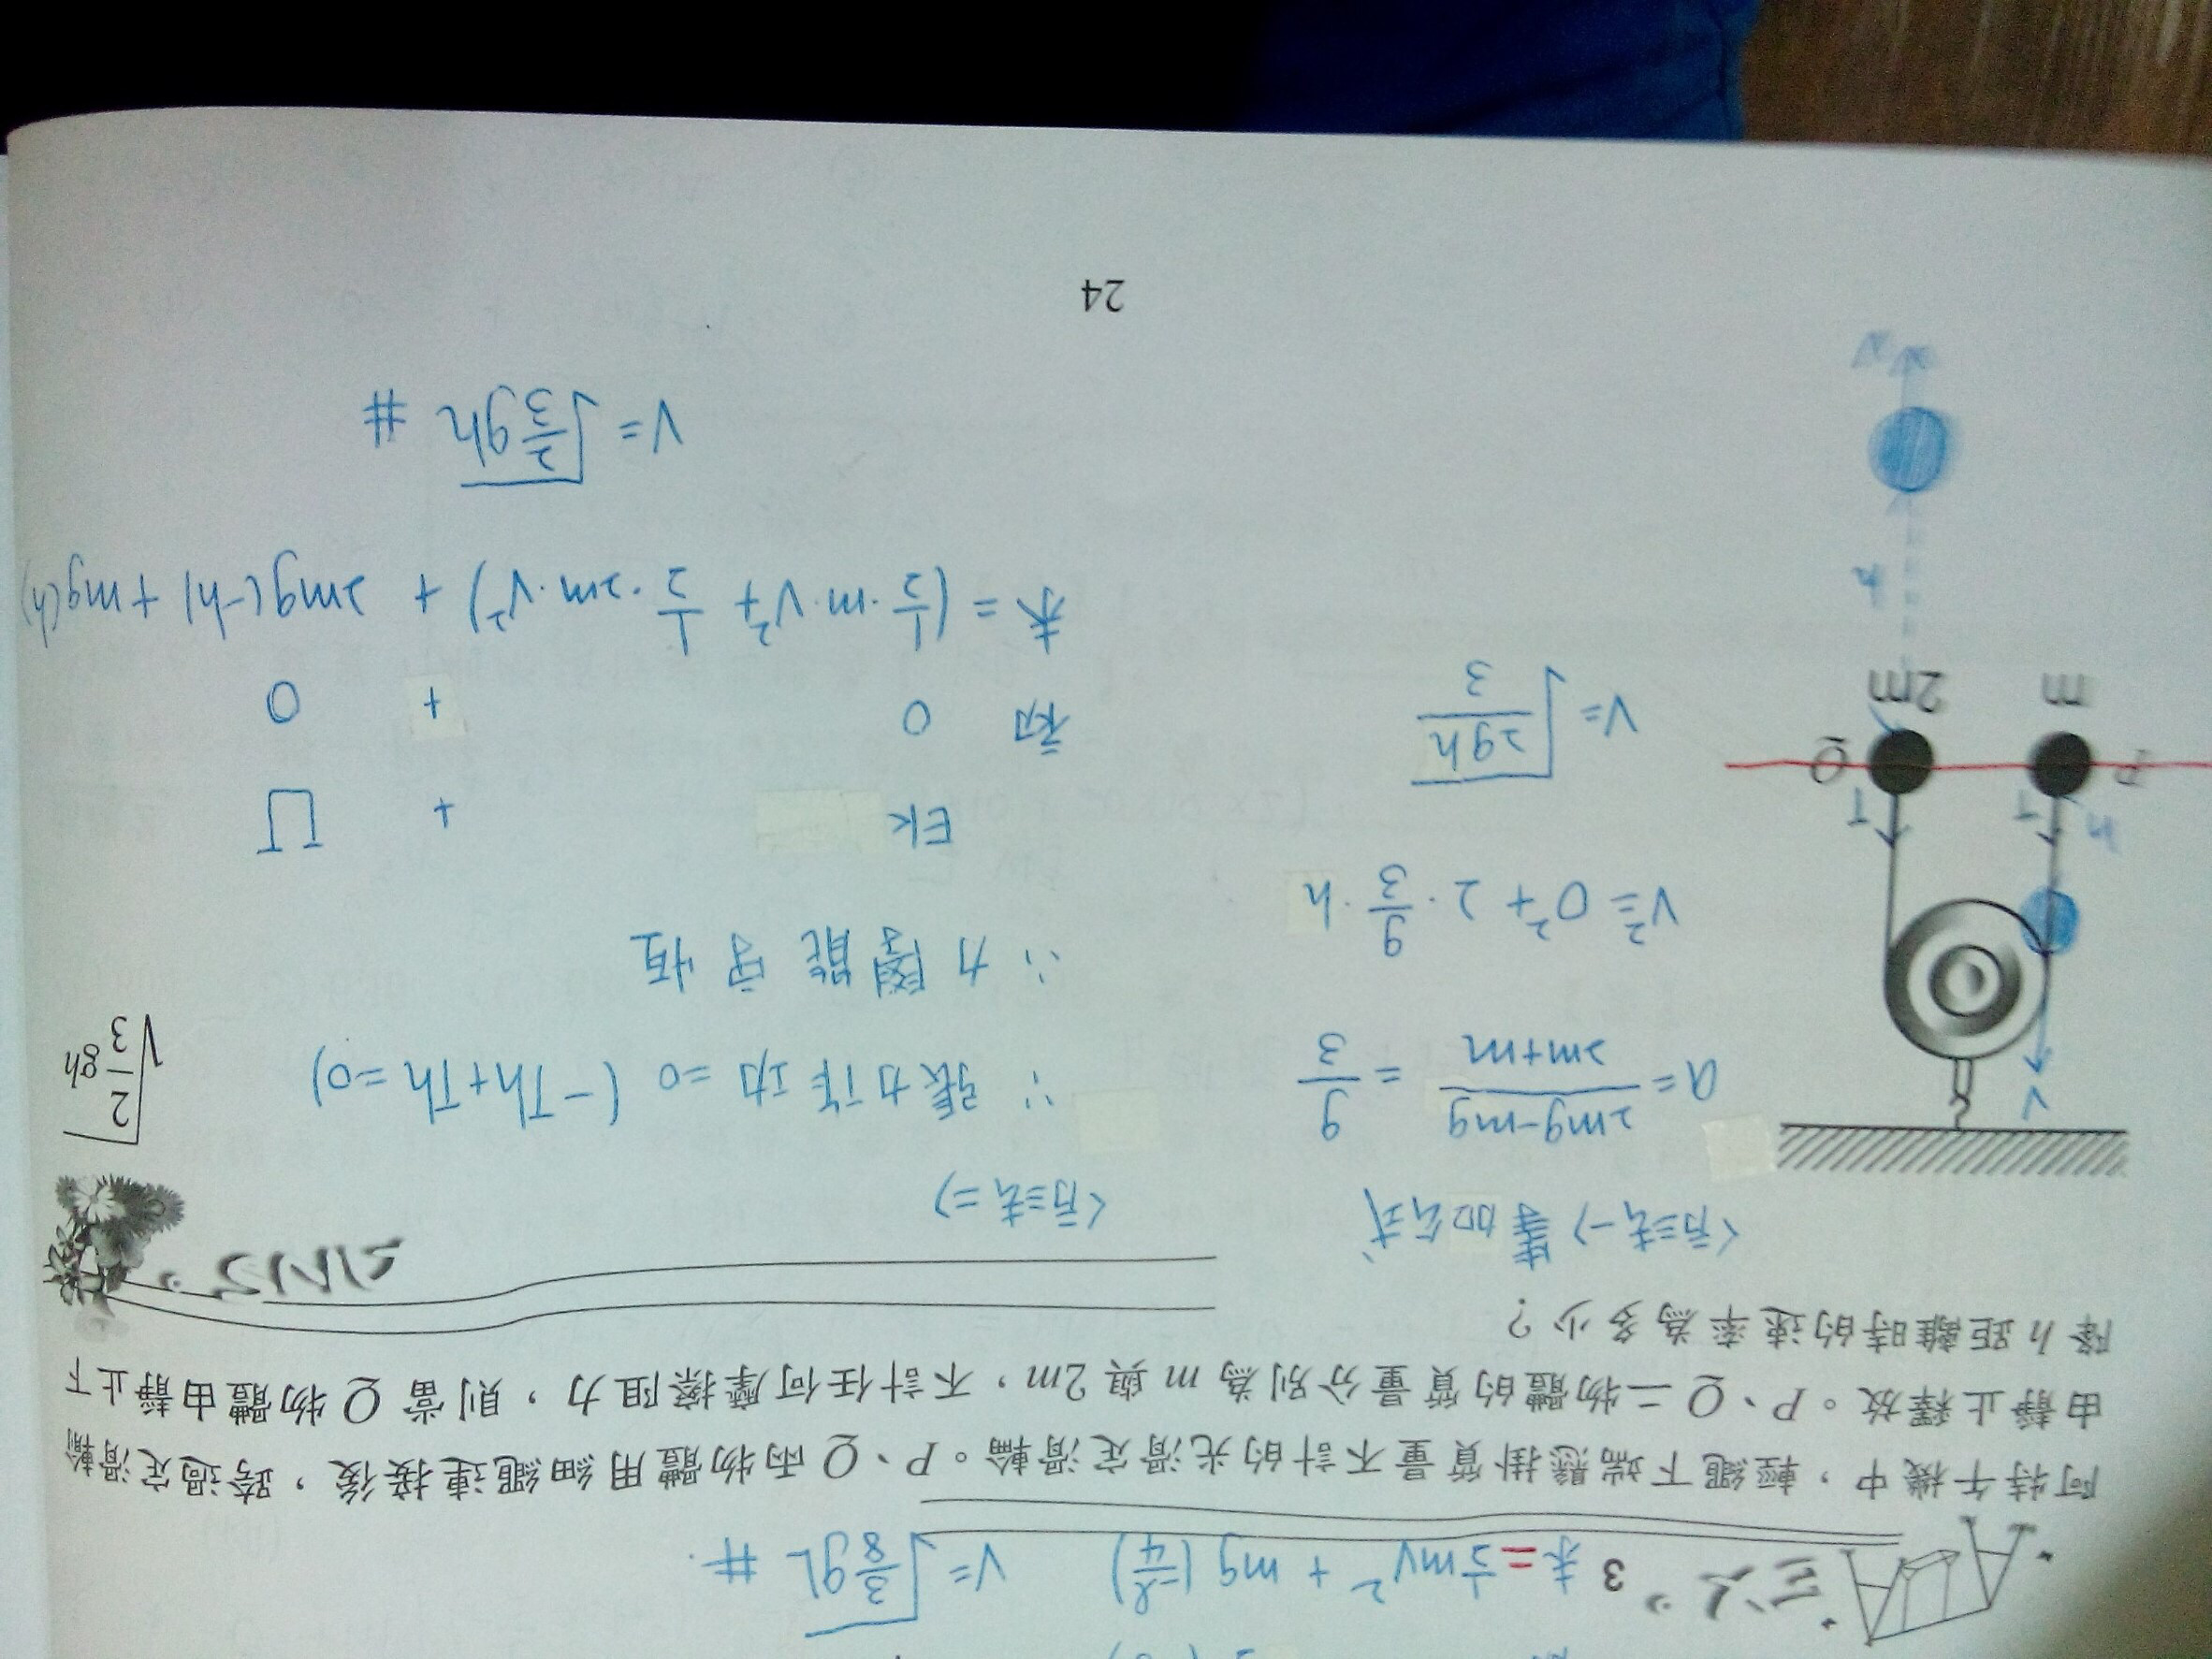 末 = ½mv² + mg(-ℓ/4) V=√(3/8 gL) #
3
阿特午機中，輕繩下端懸掛質量不計的光滑定滑輪。P、Q兩物體用細繩連接後，跨過定滑輪
由靜止釋放。P、Q二物體的質量分別為m與2m，不計任何摩擦阻力，則當Q物體由靜止下
降h距離時的速率為多少？
ANS
√(2/3 gh)
<方法一> 等加公式
a = (2mg-mg)/(2m+m) = g/3
V² = 0² + 2·g/3·h
V = √(2gh/3)
<方法二>
∵ 張力作功 = 0 (-Th+Th=0)
∴ 力學能守恆
Ek + U
初 0 + 0
末 = (½·m·V² + ½·2m·V²) + 2mg(-h) + mg(h)
V = √(2/3 gh) #
V
h
T T
P Q
m 2m
h
24